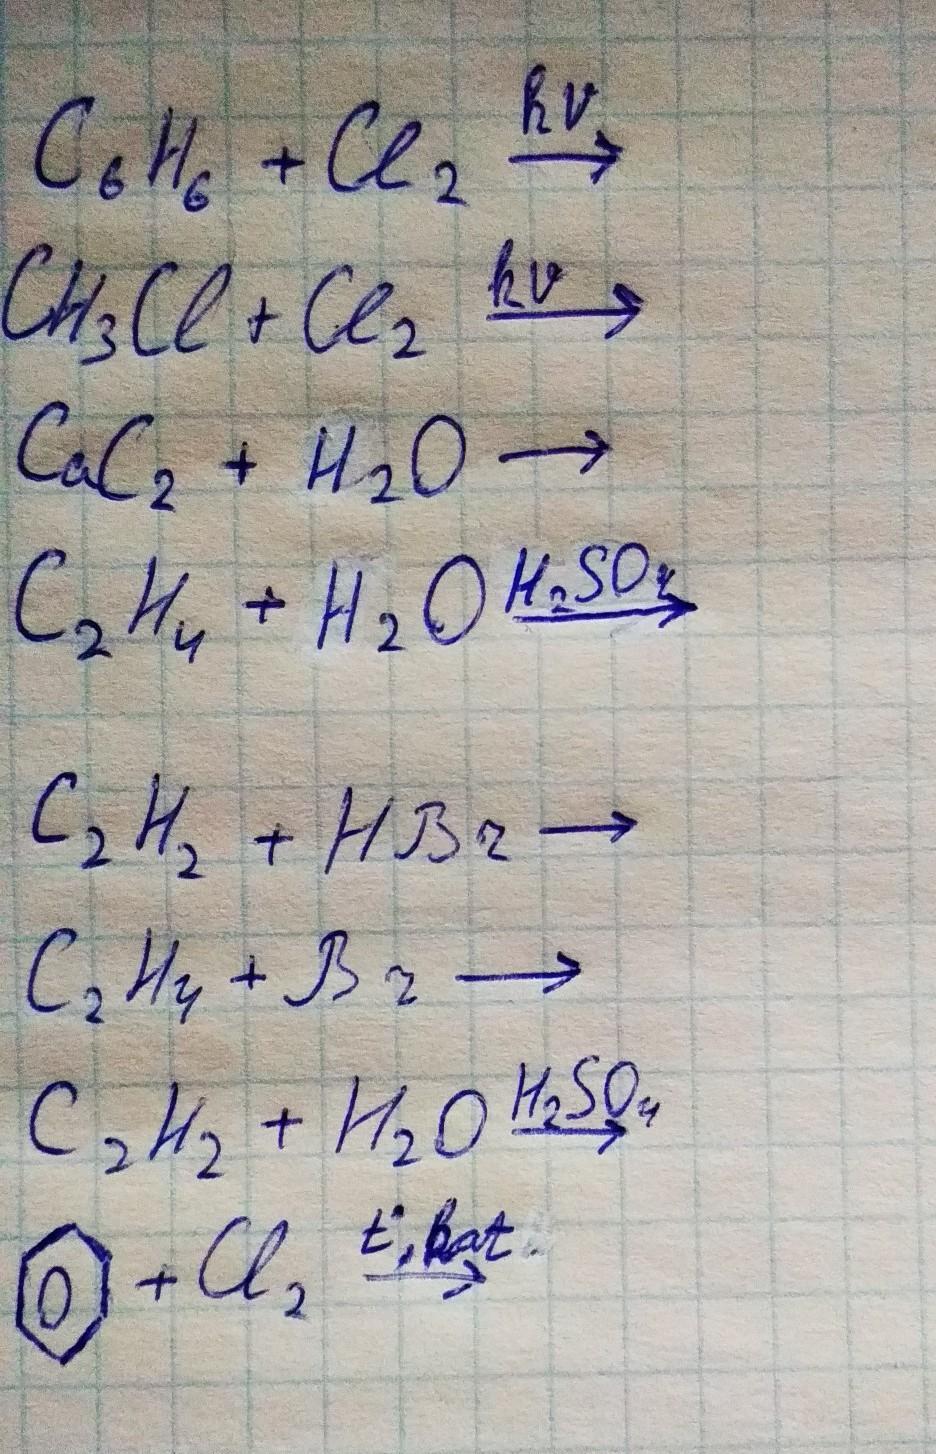 C₆H₆ + Cl₂ hν →
CH₃Cl + Cl₂ hν →
CaC₂ + H₂O →
C₂H₄ + H₂O H₂SO₄ →
C₂H₂ + HBr →
C₂H₄ + Br →
C₂H₂ + H₂O H₂SO₄ →
+ Cl₂ t°, kat →